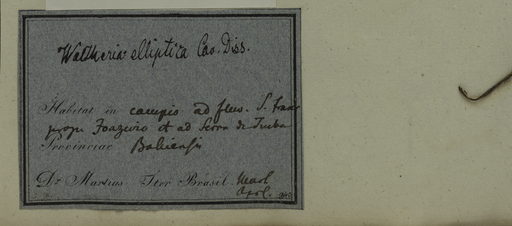 Waltheria elliptica Cav. Diss.
Habitat in campis ad fluv. S. Franc
prope Joazeiro et ad Serra de Tiuba
Provinciae Bahiensis
Dr Martius Iter Brasil. Mart
Apr.